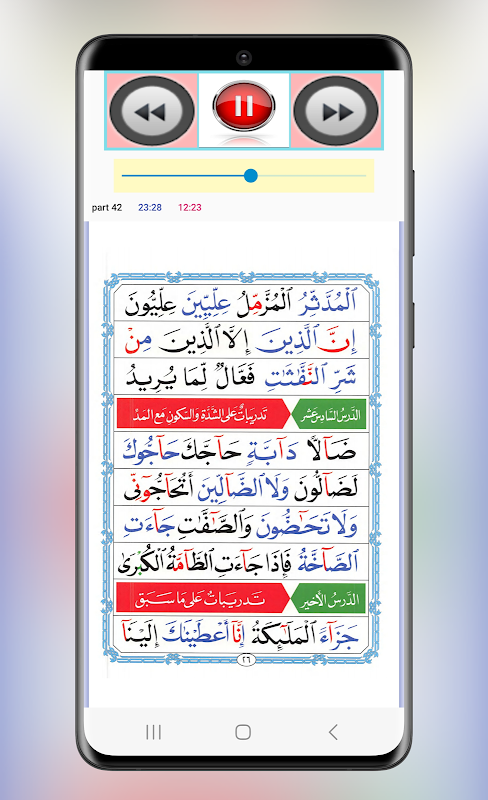 part 42 23:28 12:23
ٱلْمُدَّثِّرُ ٱلْمُزَّمِّلُ عِلِّيِّينَ عِلِّيُّونَ
إِنَّ ٱلَّذِينَ إِلَّا ٱلَّذِينَ مِنْ
شَرِّ ٱلنَّفَّٰثَٰتِ فَعَّالٌ لِّمَا يُرِيدُ
الدَّرْسُ السَّادِسَ عَشَرَ تَدْرِيبَاتٌ عَلَى الشَّدَّةِ وَالسُّكُونِ مَعَ الْمَدِّ
ضَآلًّا دَآبَّةٍ حَآجَّكَ حَآجُّوكَ
لَضَآلُّونَ وَلَا ٱلضَّآلِّينَ أَتُحَآجُّوٓنِّى
وَلَا تَحَٰٓضُّونَ وَٱلصَّٰٓفَّٰتِ جَآءَتِ
ٱلصَّآخَّةُ فَإِذَا جَآءَتِ ٱلطَّآمَّةُ ٱلْكُبْرَىٰ
الدَّرْسُ الْأَخِيرُ تَدْرِيبَاتٌ عَلَى مَا سَبَقَ
جَزَآءً ٱلْمَلَٰٓئِكَةُ إِنَّآ أَعْطَيْنَٰكَ إِلَيْنَآ
٢٦